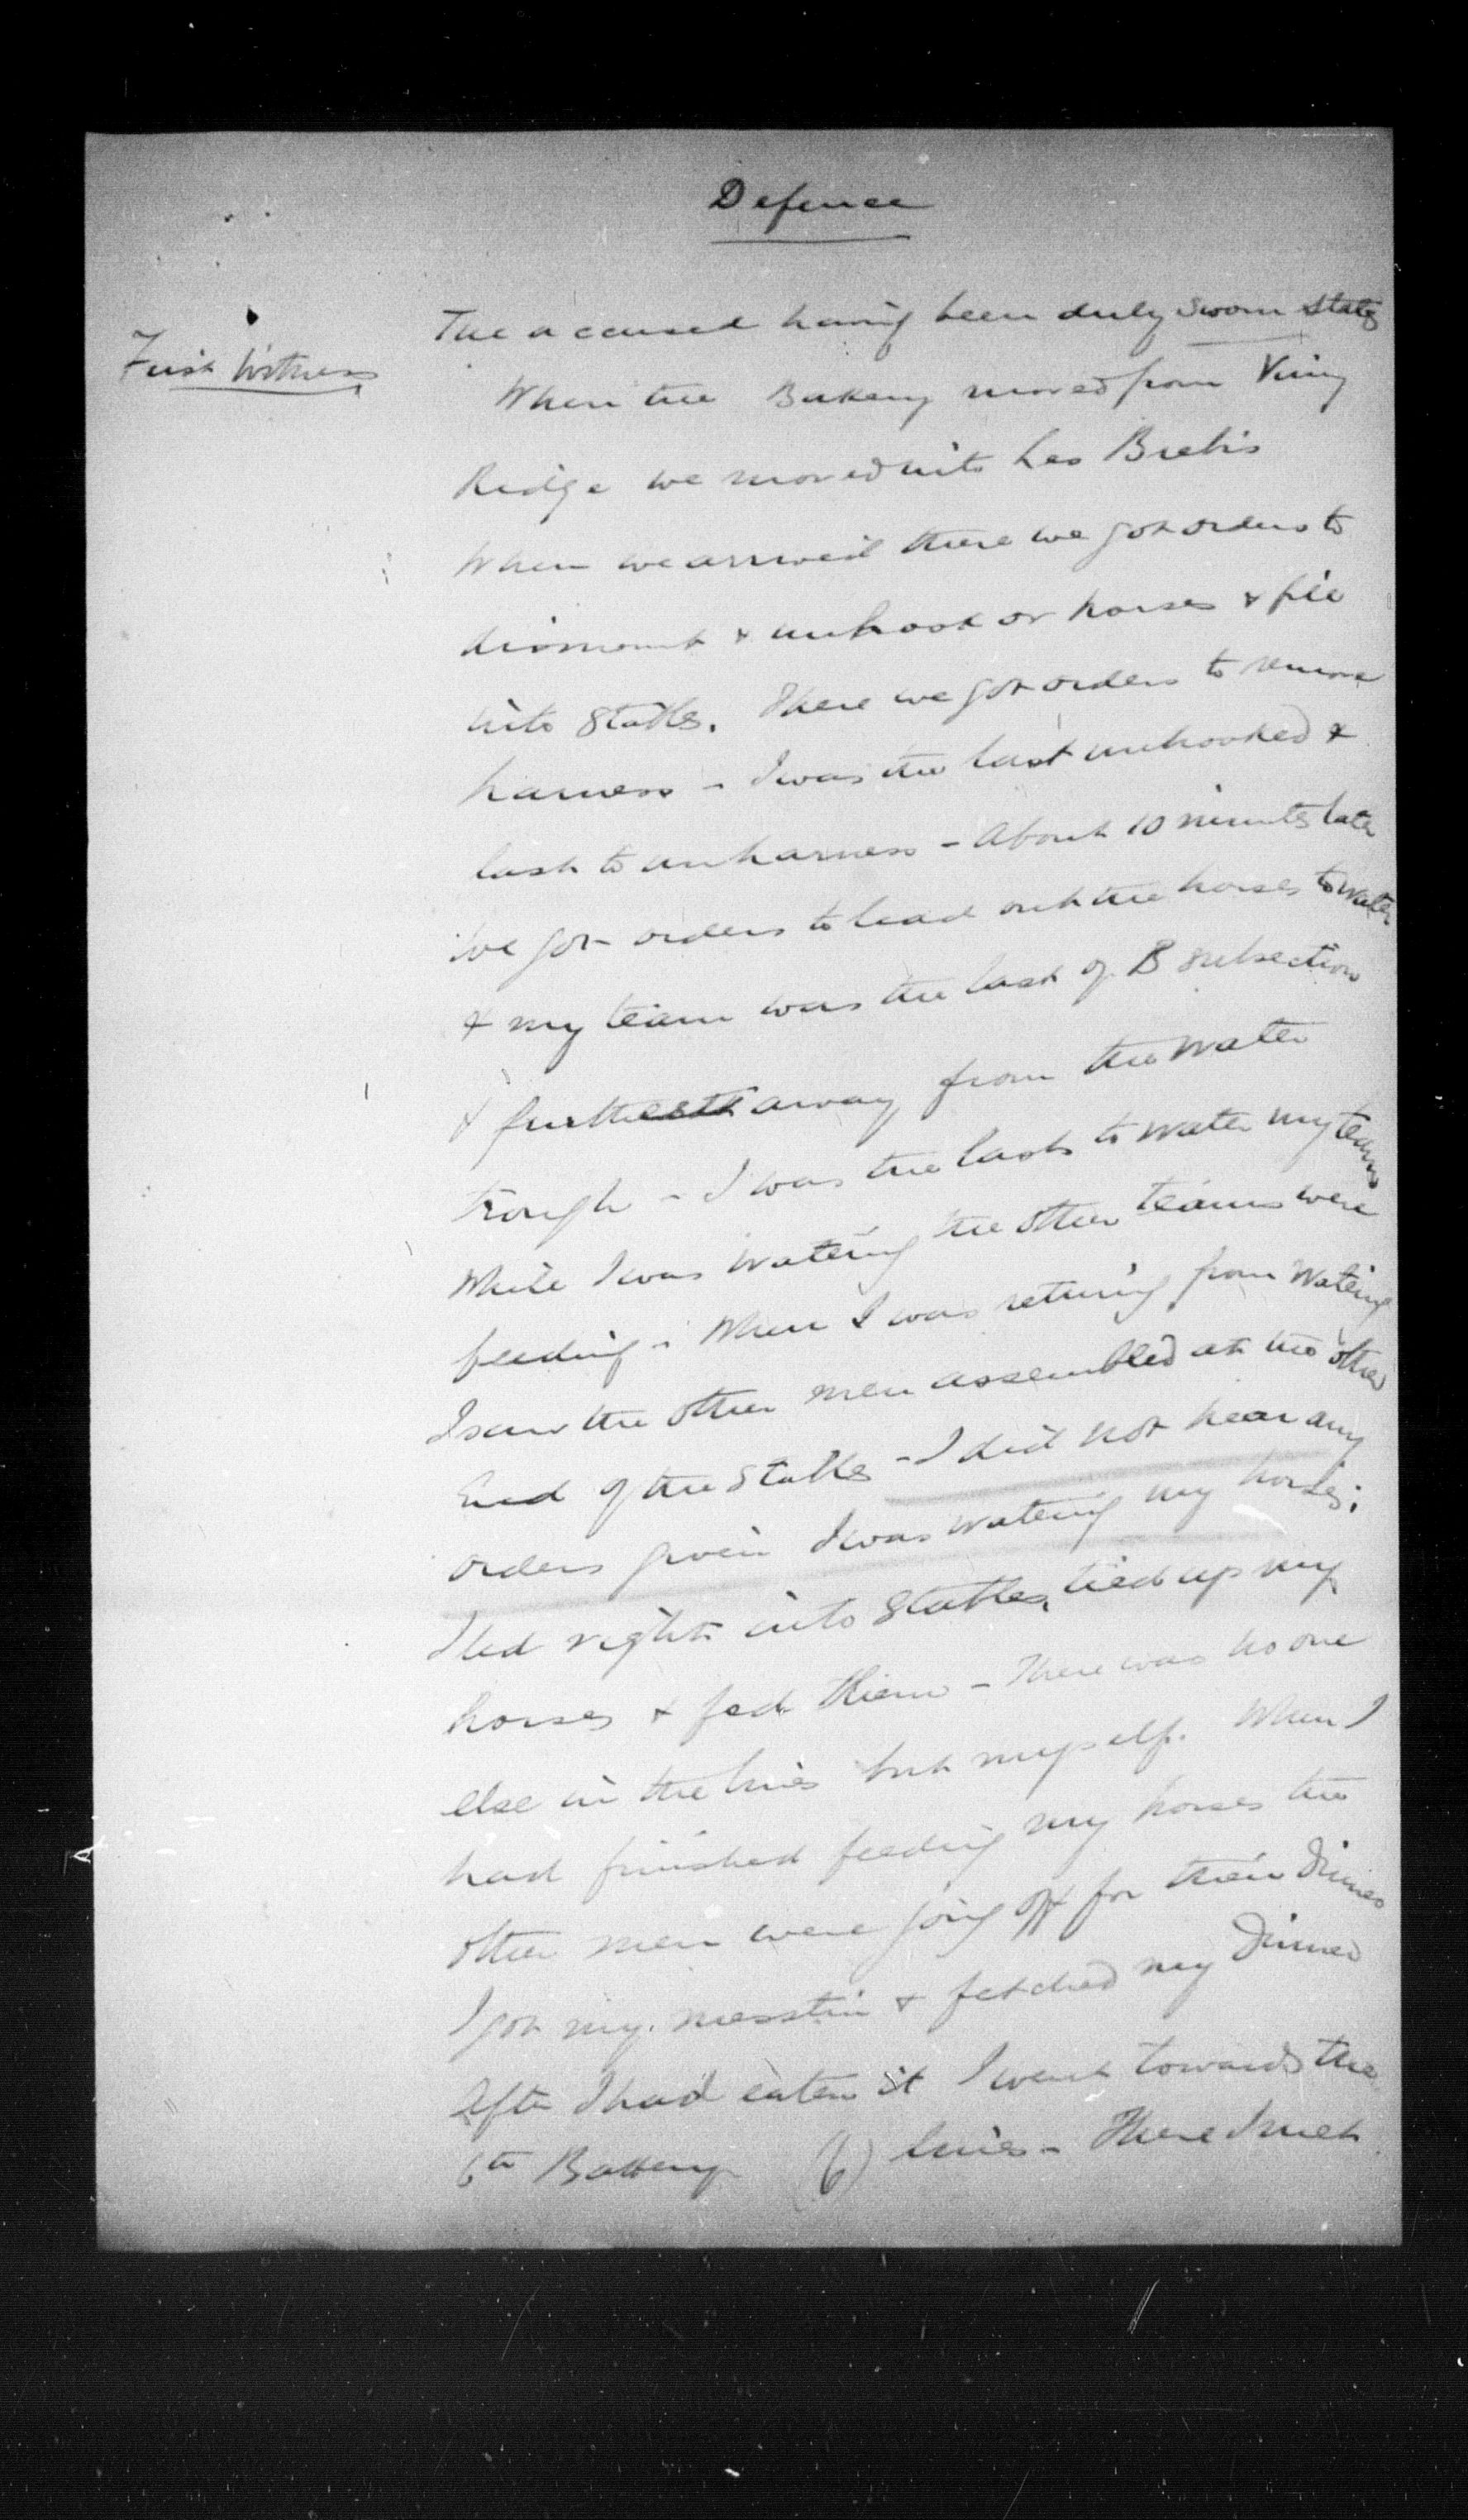 Defence
First Witness
The accused having been duly sworn states
When the Battery moved from Vimy
Ridge we moved into Les Brebis
When we arrived there we got orders to
dismount & unhook or horses & file
into stables. There we got orders to remove
harness - I was the last unhooked &
last to unharness - About 10 minutes later
we got orders to lead out the horses to water
& my team was the last of B subsection
& furthest away from the water
trough - I was the last to water my team
While I was watering the other teams were
feeding - When I was returning from watering
I saw the other men assembled at the other
end of the stables - I did not hear any
orders given I was watering my horses;
I led right into stables, tied up my
horses & fed them - There was no one
else in the lines but myself. When I
had finished feeding my horses the
other men were going off for their dinner
I got my messtin & fetched my dinner
After I had eaten it I went towards the
6th Battery (6) lines - There I met